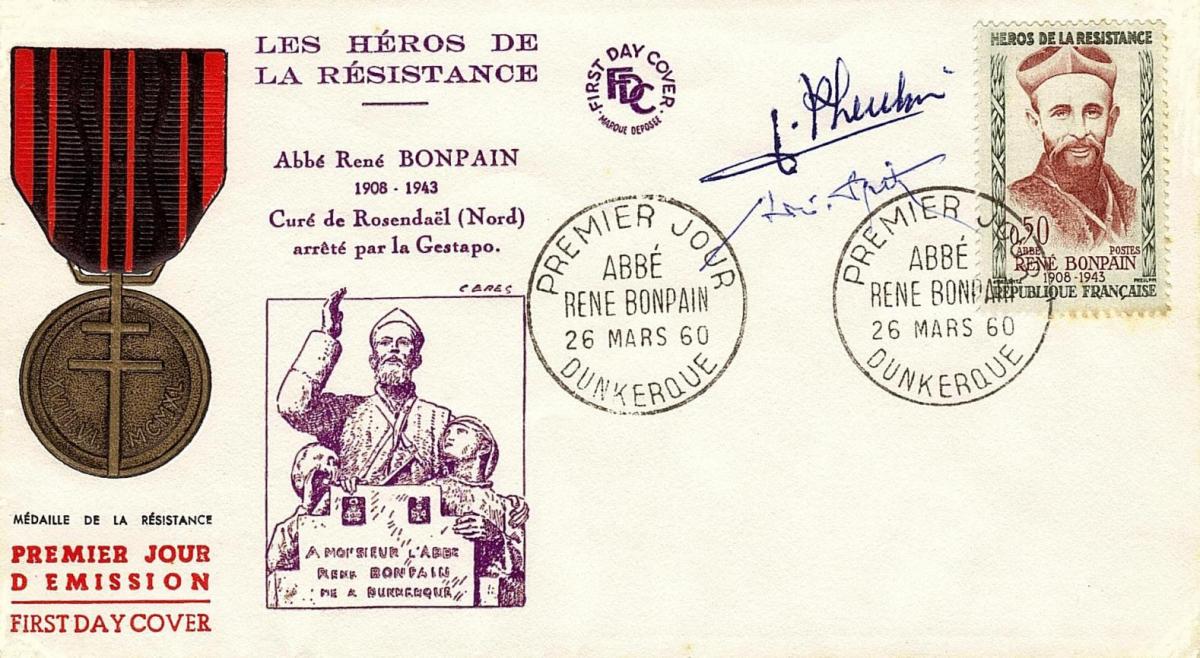 LES HÉROS DE
LA RÉSISTANCE
Abbé René BONPAIN
1908 - 1943
Curé de Rosendaël (Nord)
arrêté par la Gestapo.
CERES
A MONSIEUR L'ABBE
RENE BONPAIN
NE A DUNKERQUE
XVIII VI MCMXL
MÉDAILLE DE LA RÉSISTANCE
PREMIER JOUR
D EMISSION
FIRST DAY COVER
FIRST DAY COVER
FDC
MARQUE DEPOSEE
PREMIER JOUR
ABBÉ
RENE BONPAIN
26 MARS 60
DUNKERQUE
PREMIER JOUR
ABBÉ
RENE BONPAIN
26 MARS 60
DUNKERQUE
HEROS DE LA RESISTANCE
0,50
ABBÉ POSTES
RENÉ BONPAIN
1908-1943
RÉPUBLIQUE FRANÇAISE